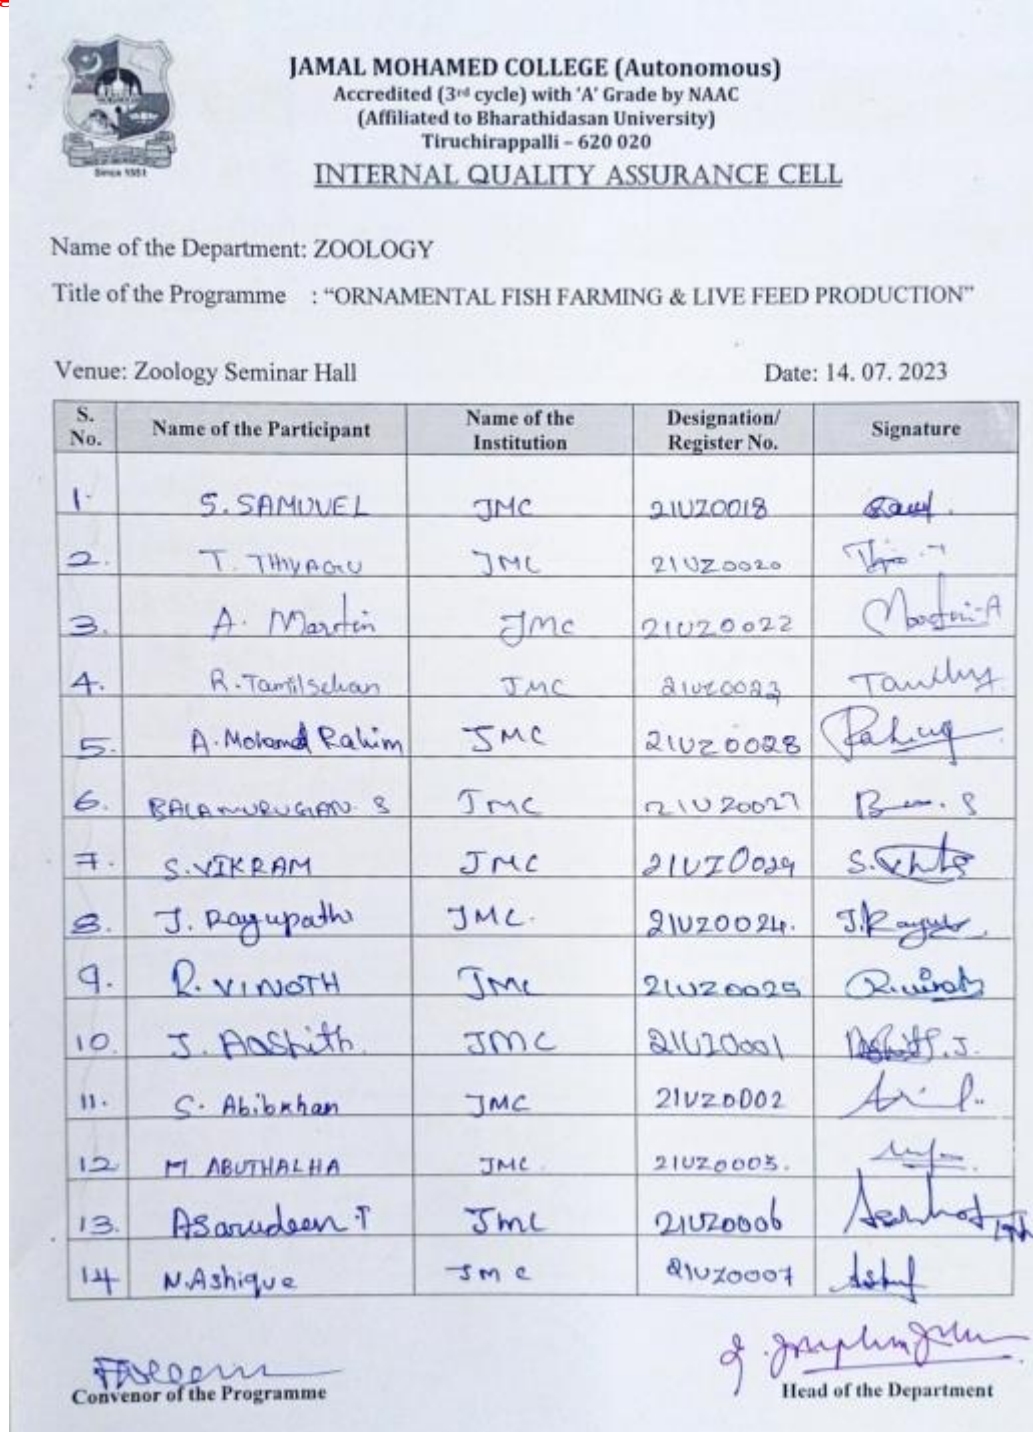 JAMAL MOHAMED COLLEGE (Autonomous)
Accredited (3rd cycle) with 'A' Grade by NAAC
(Affiliated to Bharathidasan University)
Tiruchirappalli – 620 020
Since 1951
INTERNAL QUALITY ASSURANCE CELL
Name of the Department: ZOOLOGY
Title of the Programme : "ORNAMENTAL FISH FARMING & LIVE FEED PRODUCTION"
Venue: Zoology Seminar Hall Date: 14. 07. 2023
S. No. Name of the Participant Name of the Institution Designation/ Register No. Signature
1. S. SAMUVEL JMC 21UZ0018
2. T. THIYAGU JMC 21UZ0020
3. A. Martin JMC 21UZ0022 Martin-A
4. R. Tamilselvan JMC 21UZ0023
5. A. Mohamed Rahim JMC 21UZ0028
6. BALAMURUGAN. S JMC 21UZ0027
7. S. VIKRAM JMC 21UZ0029
8. J. Ragupathi JMC. 21UZ0024.
9. R. VINOTH JMC 21UZ0025
10. J. Aashith. JMC 21UZ0001
11. S. Abibkhan JMC 21UZ0002
12 M ABUTHALHA JMC. 21UZ0003.
13. Asarudeen T JMC 21UZ0006
14 N. Ashique JMC 21UZ0007
Convenor of the Programme Head of the Department